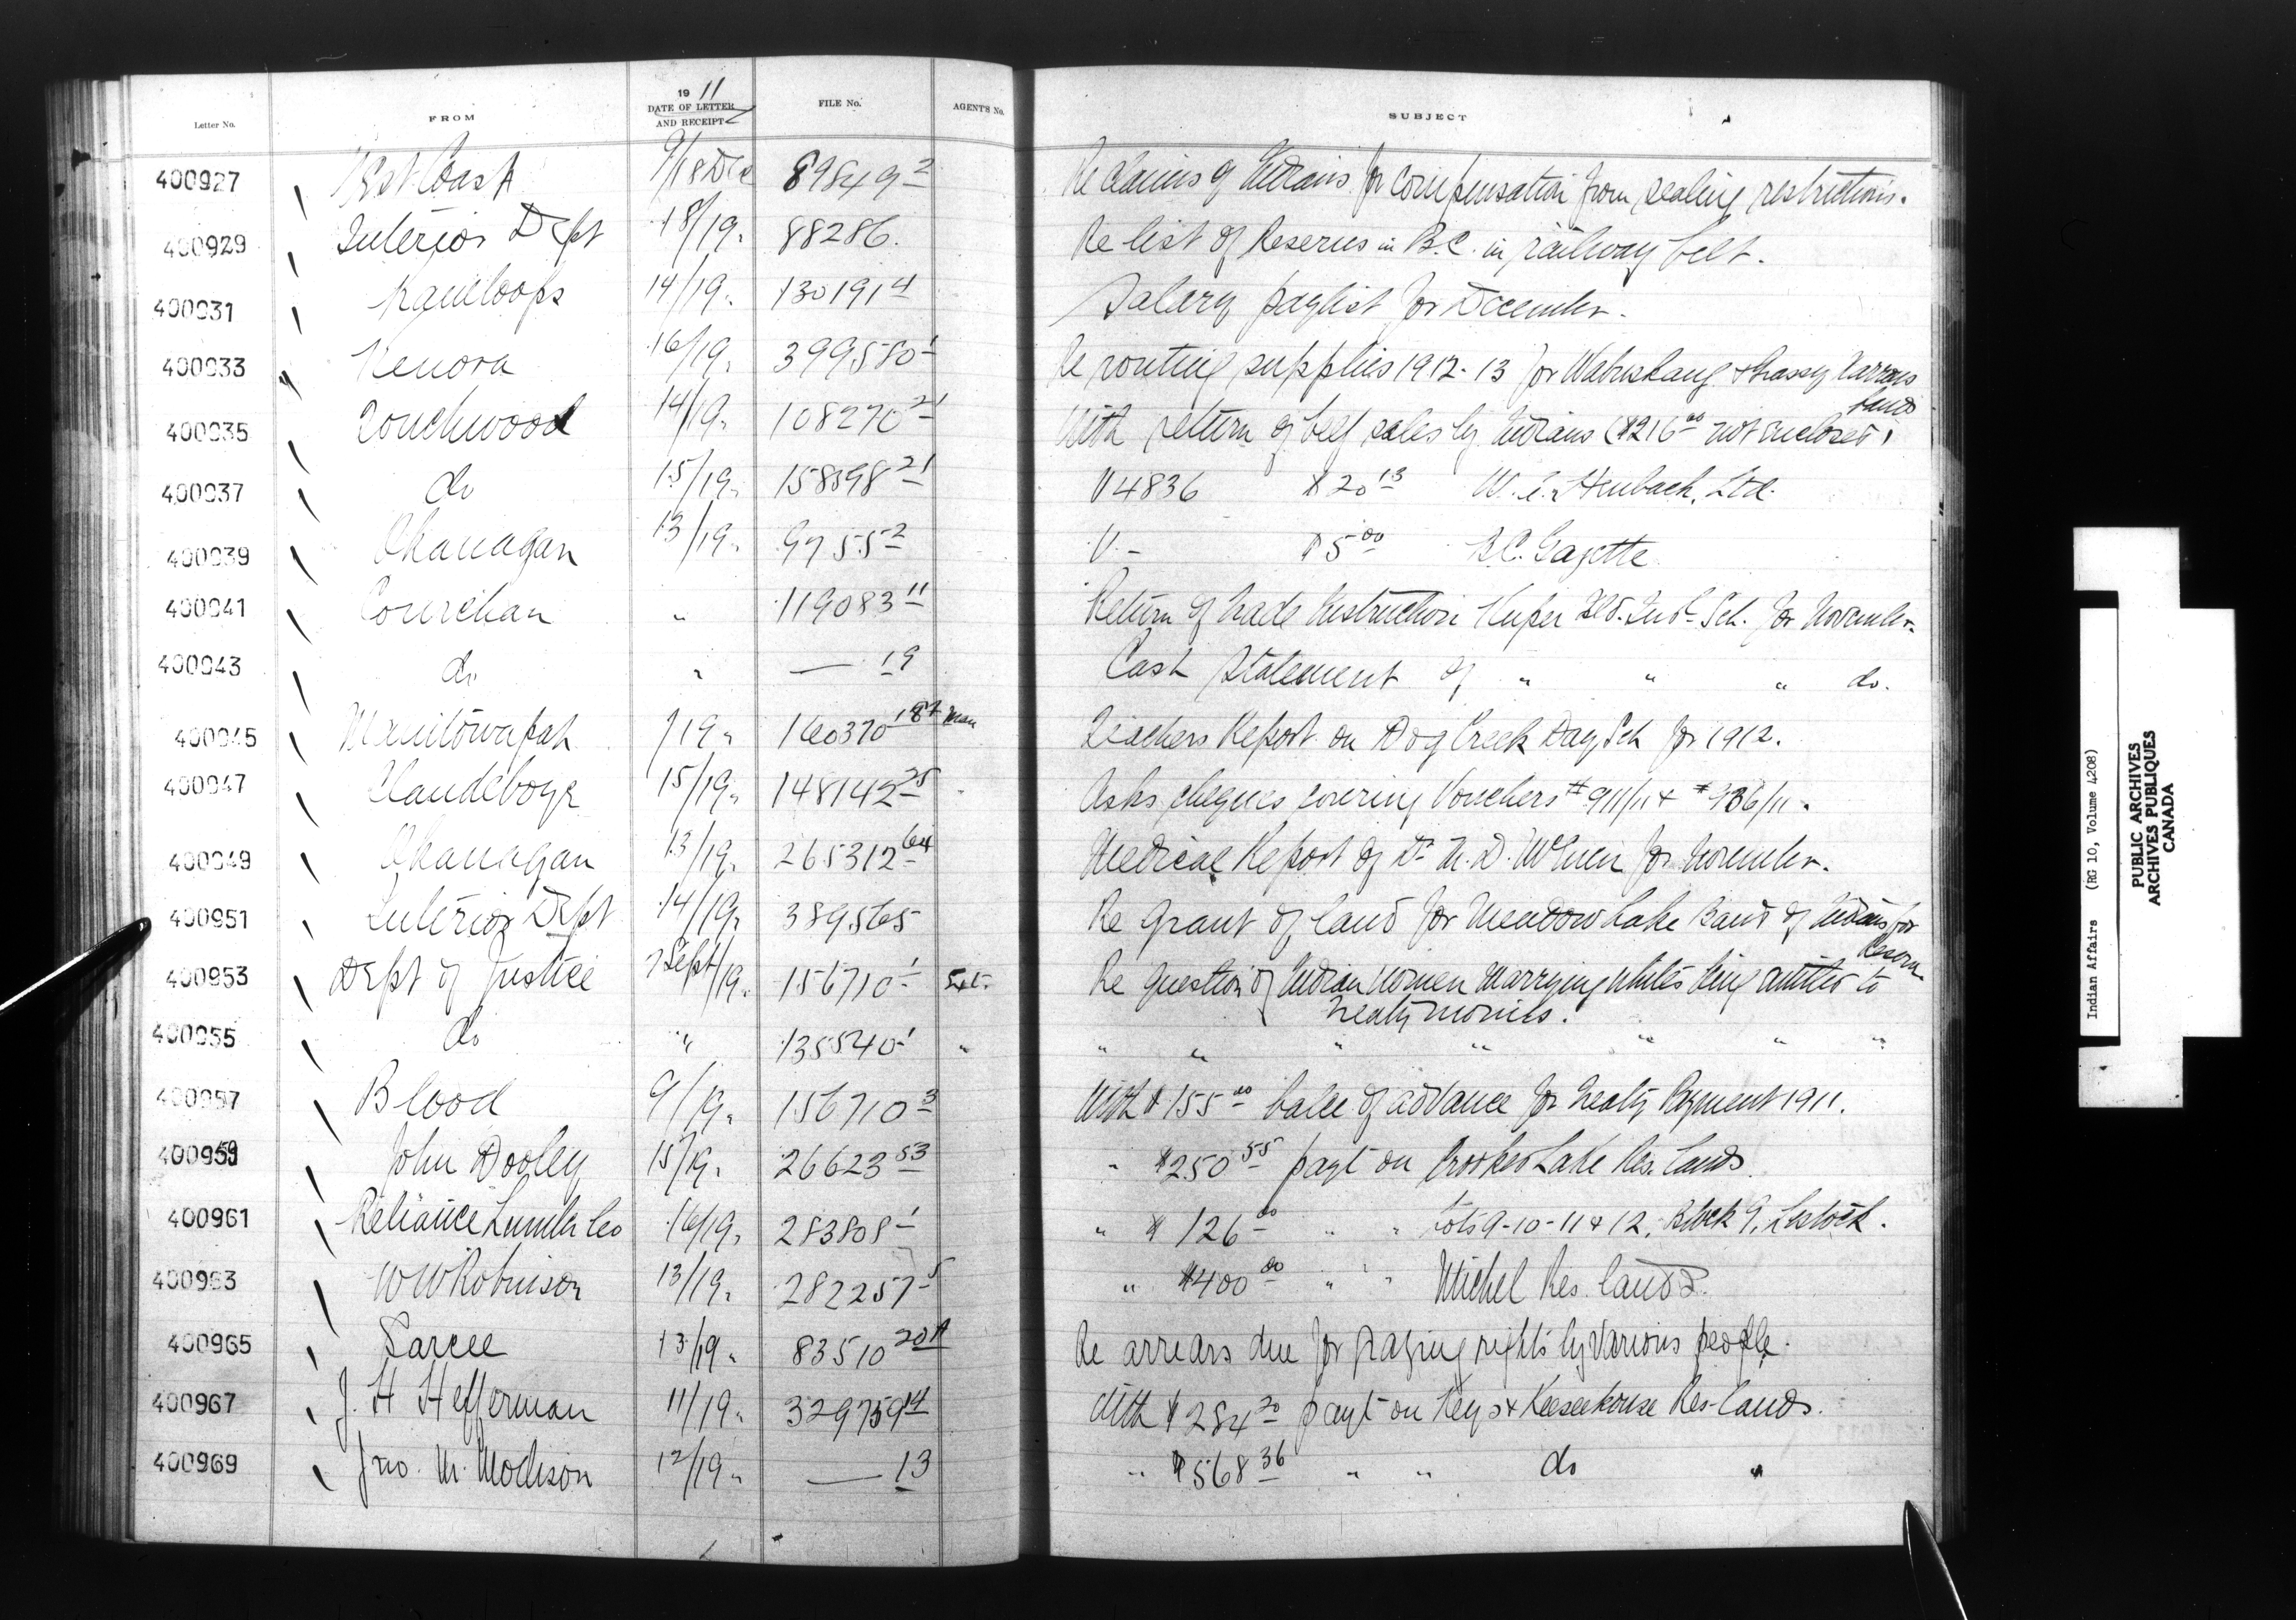 Letter No. FROM 1911 DATE OF LETTER AND RECEIPT FILE No. AGENT'S No. SUBJECT
400927 West Coast 9/18 Dec 89849-2 Re Claims of Indians for Compensation from sealing restrictions.
400929 Interior Dept 18/19 " 88286. Re list of Reserves in B.C. in railway belt.
400931 Kamloops 14/19 " 130191-4 Salary paylist for December.
400933 Kenora 16/19 " 399580-1 Re routing supplies 1912-13 for Wabuskang & Grassy Narrows bands
400935 Touchwood 14/19 " 108270-21 With return of beef sales by Indians ($216.00 not enclosed)
400937 do 15/19 " 158598-21 V 4836 $20.13 W. E. Heubach, Ltd.
400939 Okanagan 13/19 " 9755-2 V - $5.00 B.C. Gazette
400941 Cowichan " 119083-11 Return of Trade Instruction Kuper Isld. Indl Sch. for November.
400943 do " — 19 Cash Statement of " " " do.
400945 Manitowapah /19 " 160370-18 Man Teachers Report on Dog Creek Day Sch for 1912.
400947 Clandeboye 15/19 " 148142-25 Asks cheques covering Vouchers #911/11 & #936/11.
400949 Okanagan 13/19 " 265312-64 Medical Report of Dr for November.
400951 Interior Dept 14/19 " 389565 Re Grant of land for Meadow Lake Band of Indians for Reserve
400953 Dept of Justice 7 Sept/19 " 156710-1 Ext. Re Question of Indian women marrying whites being entitled to
Treaty monies.
400955 do " 135540-1 " " " " " " " "
400957 Blood 9/19 " 156710-3 With $155.00 balce of advance for Treaty Payment 1911.
400959 John Dooley 15/19 " 26623-53 " $250.55 payt on Crooked Lake Res. lands.
400961 Reliance Lumber Co 16/19 " 283808-1 " $126.00 " " Lots 9-10-11 & 12, Block 9, Lestock.
400963 W W Robinson 13/19 " 282257-5 " $400.00 " " Michel Res. lands.
400965 Sarcee 13/19 " 83510-20A Re arrears due for grazing rights by various people.
400967 J. H Hefferman 11/19 " 329759-14 With $284.20 payt on Keys & Keeseekouse Res. lands.
400969 Jno. M. Modison 12/19 " — 13 " $568.36 " " do "
Indian Affairs (RG 10, Volume 4208)
PUBLIC ARCHIVES
ARCHIVES PUBLIQUES
CANADA